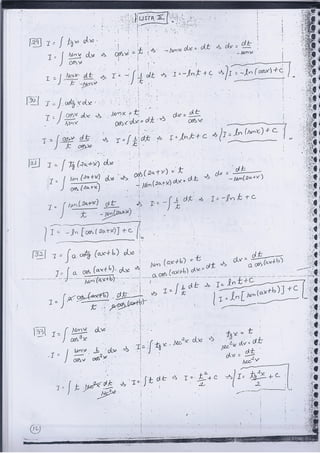 LISTA II
29 I = ∫ tgx dx
I = ∫ senx/cosx dx ⇒ cosx = t ⇒ -senx dx = dt ⇒ dx = dt/-senx
I = ∫ senx/t dt/-senx ⇒ I = -∫ 1/t dt ⇒ I = -ln t + c ⇒ I = -ln (cosx) + c
30 I = ∫ cotg x dx
I = ∫ cosx/senx dx ⇒ senx = t
cosx dx = dt ⇒ dx = dt/cosx
I = ∫ cosx/t dt/cosx ⇒ I = ∫ 1/t dt ⇒ I = ln t + c ⇒ I = ln (senx) + c
31 I = ∫ tg (2a+x) dx
I = ∫ sen (2a+x)/cos (2a+x) dx ⇒ cos (2a+x) = t
-sen (2a+x) dx = dt ⇒ dx = dt/-sen(2a+x)
I = ∫ sen (2a+x)/t dt/-sen(2a+x) ⇒ I = -∫ 1/t dt ⇒ I = -ln t + c
I = -ln [cos (2a+x)] + c
32 I = ∫ a cotg (ax+b) dx
I = ∫ a cos (ax+b)/sen (ax+b) dx ⇒ sen (ax+b) = t
a cos (ax+b) dx = dt ⇒ dx = dt/a cos (ax+b)
I = ∫ a cos (ax+b)/t dt/a cos (ax+b) ⇒ I = ∫ 1/t dt ⇒ I = ln t + c
I = ln [sen (ax+b)] + c
33 I = ∫ senx/cos³x dx
I = ∫ senx/cosx 1/cos²x dx ⇒ I = ∫ tgx . sec²x dx ⇒ tgx = t
sec²x dx = dt
dx = dt/sec²x
I = ∫ t sec²x dt/sec²x ⇒ I = ∫ t dt ⇒ I = t²/2 + c ⇒ I = tg²x/2 + c